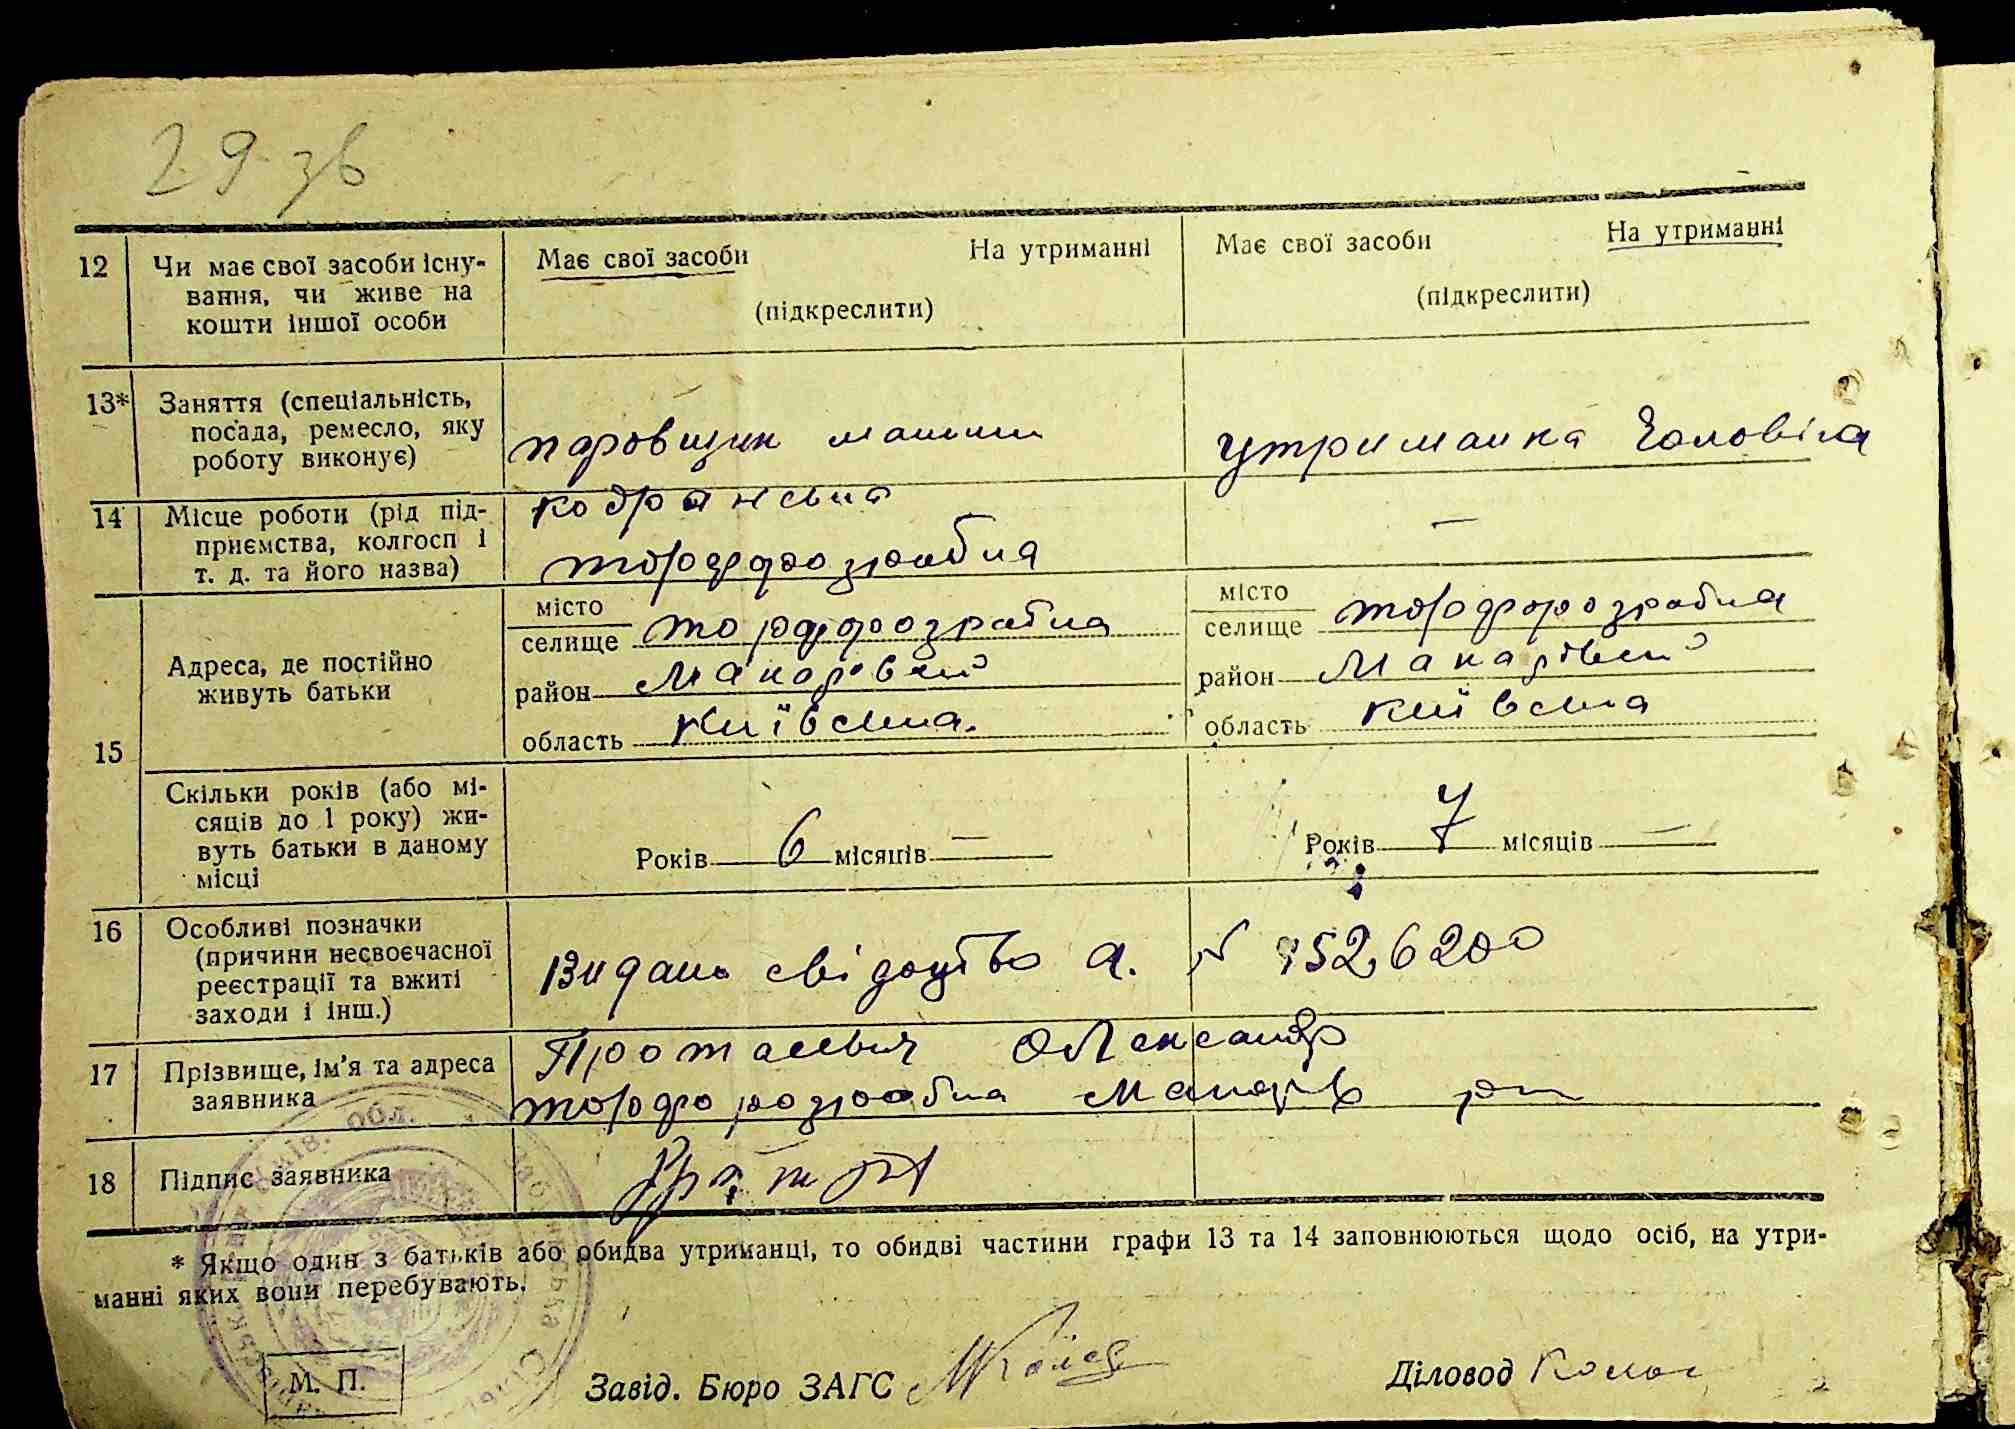 29 зв
12 Чи має свої засоби існу- Має свої засоби На утриманні Має свої засоби На утриманні
вання, чи живе на (підкреслити) (підкреслити)
кошти іншої особи
13* Заняття (спеціальність,
посада, ремесло, яку машини утриманка Чоловіка
роботу виконує)
14 Місце роботи (рід під- кодранська
приємства, колгосп і торфорозрабка
т. д. та його назва)
15 Адреса, де постійно живуть батьки
місто місто
селище торфорозрабка селище торфорозрабка
район Макарівський район Макарівський
область Київська. область Київська
Скільки років (або мі-
сяців до 1 року) жи-
вуть батьки в даному Років 6 місяців — Років 7 місяців —
місці
16 Особливі позначки
(причини несвоєчасної Видано свідоцтво А. № 526200
реєстрації та вжиті
заходи і інш.)
17 Прізвище, ім'я та адреса Олександр
заявника торфорозрабка Макарів рн
18 Підпис заявника
* Якщо один з батьків або обидва утриманці, то обидві частини графи 13 та 14 заповнюються щодо осіб, на утри-
манні яких вони перебувають.
М. П. Завід. Бюро ЗАГС Діловод